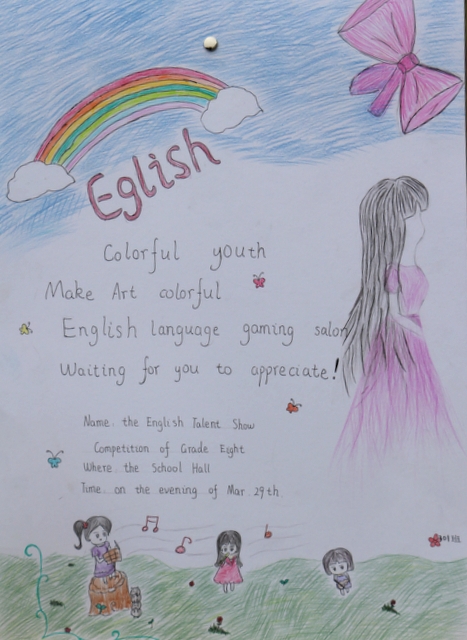 Eglish
Colorful youth
Make Art colorful
English language gaming salon
Waiting for you to appreciate!
Name. the English Talent Show
Competition of Grade Eight
Where. the School Hall
Time. on the evening of Mar 29th.